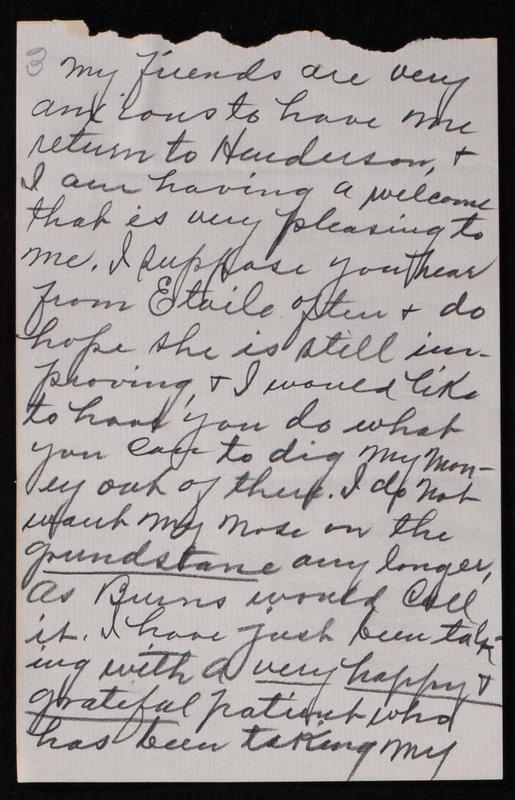 3 My friends are very
anxious to have me
return to Henderson, +
I am having a welcome
that is very pleasing to
me. I suppose you hear
from Etoile often + do
hope she is still im-
proving, + I would like
to have you do what
you can to dig my mon-
ey out of them. I do not
want my nose on the
grundstane any longer,
as Burns would call
it. I have just been talk-
ing with a very happy +
grateful patient who
has been taking my